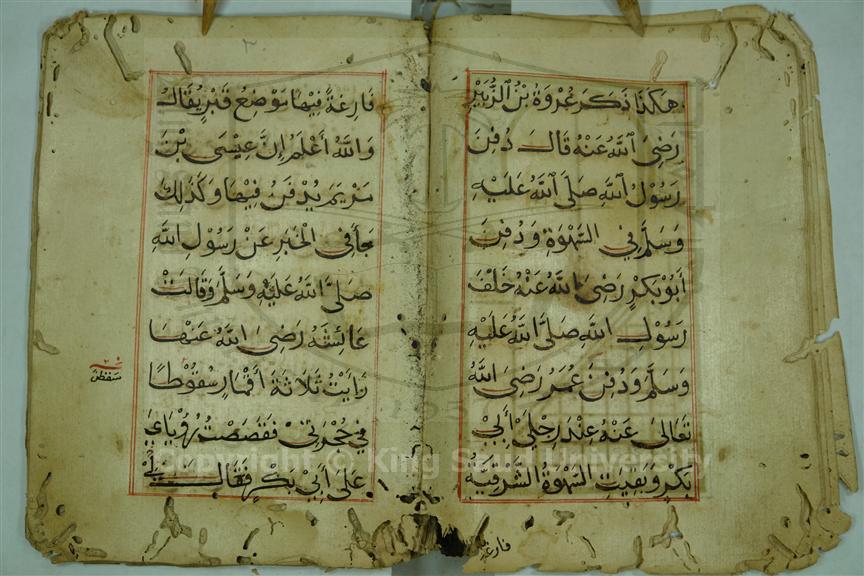 هَكَذَا ذَكَرَ عُرْوَةُ بْنُ الزُّبَيْرِ
رَضِيَ اللهُ عَنْهُ قَالَ دُفِنَ
رَسُوْلُ اللهِ صَلَّى اللهُ عَلَيْهِ
وَسَلَّمَ فِي السَّهْوَةِ وَدُفِنَ
أَبُوْبَكْرٍ رَضِيَ اللهُ عَنْهُ خَلْفَ
رَسُوْلِ اللهِ صَلَّى اللهُ عَلَيْهِ
وَسَلَّمَ وَدُفِنَ عُمَرُ رَضِيَ اللهُ
تَعَالَى عَنْهُ عِنْدَ رِجْلَيْ أَبِيْ
بَكْرٍ وَبَقِيَتِ السَّهْوَةُ الشَّرْقِيَّةُ
فارغة
٢
فَارِغَةً فِيْهَا مَوْضِعُ قَبْرٍ يُقَالُ
وَاللهُ أَعْلَمُ إِنَّ عِيْسَى بْنَ
مَرْيَمَ يُدْفَنُ فِيْهَا وَكَذَلِكَ
جَاءَ فِي الْخَبَرِ عَنْ رَسُوْلِ اللهِ
صَلَّى اللهُ عَلَيْهِ وَسَلَّمَ وَقَالَتْ
عَائِشَةُ رَضِيَ اللهُ عَنْهَا
رَأَيْتُ ثَلَاثَةَ أَقْمَارٍ سُقُوْطًا
فِي حُجْرَتِيْ فَقَصَصْتُ رُؤْيَايَ
عَلَى أَبِيْ بَكْرٍ فَقَالَ لِيْ
سقطن
Copyright © King Saud University